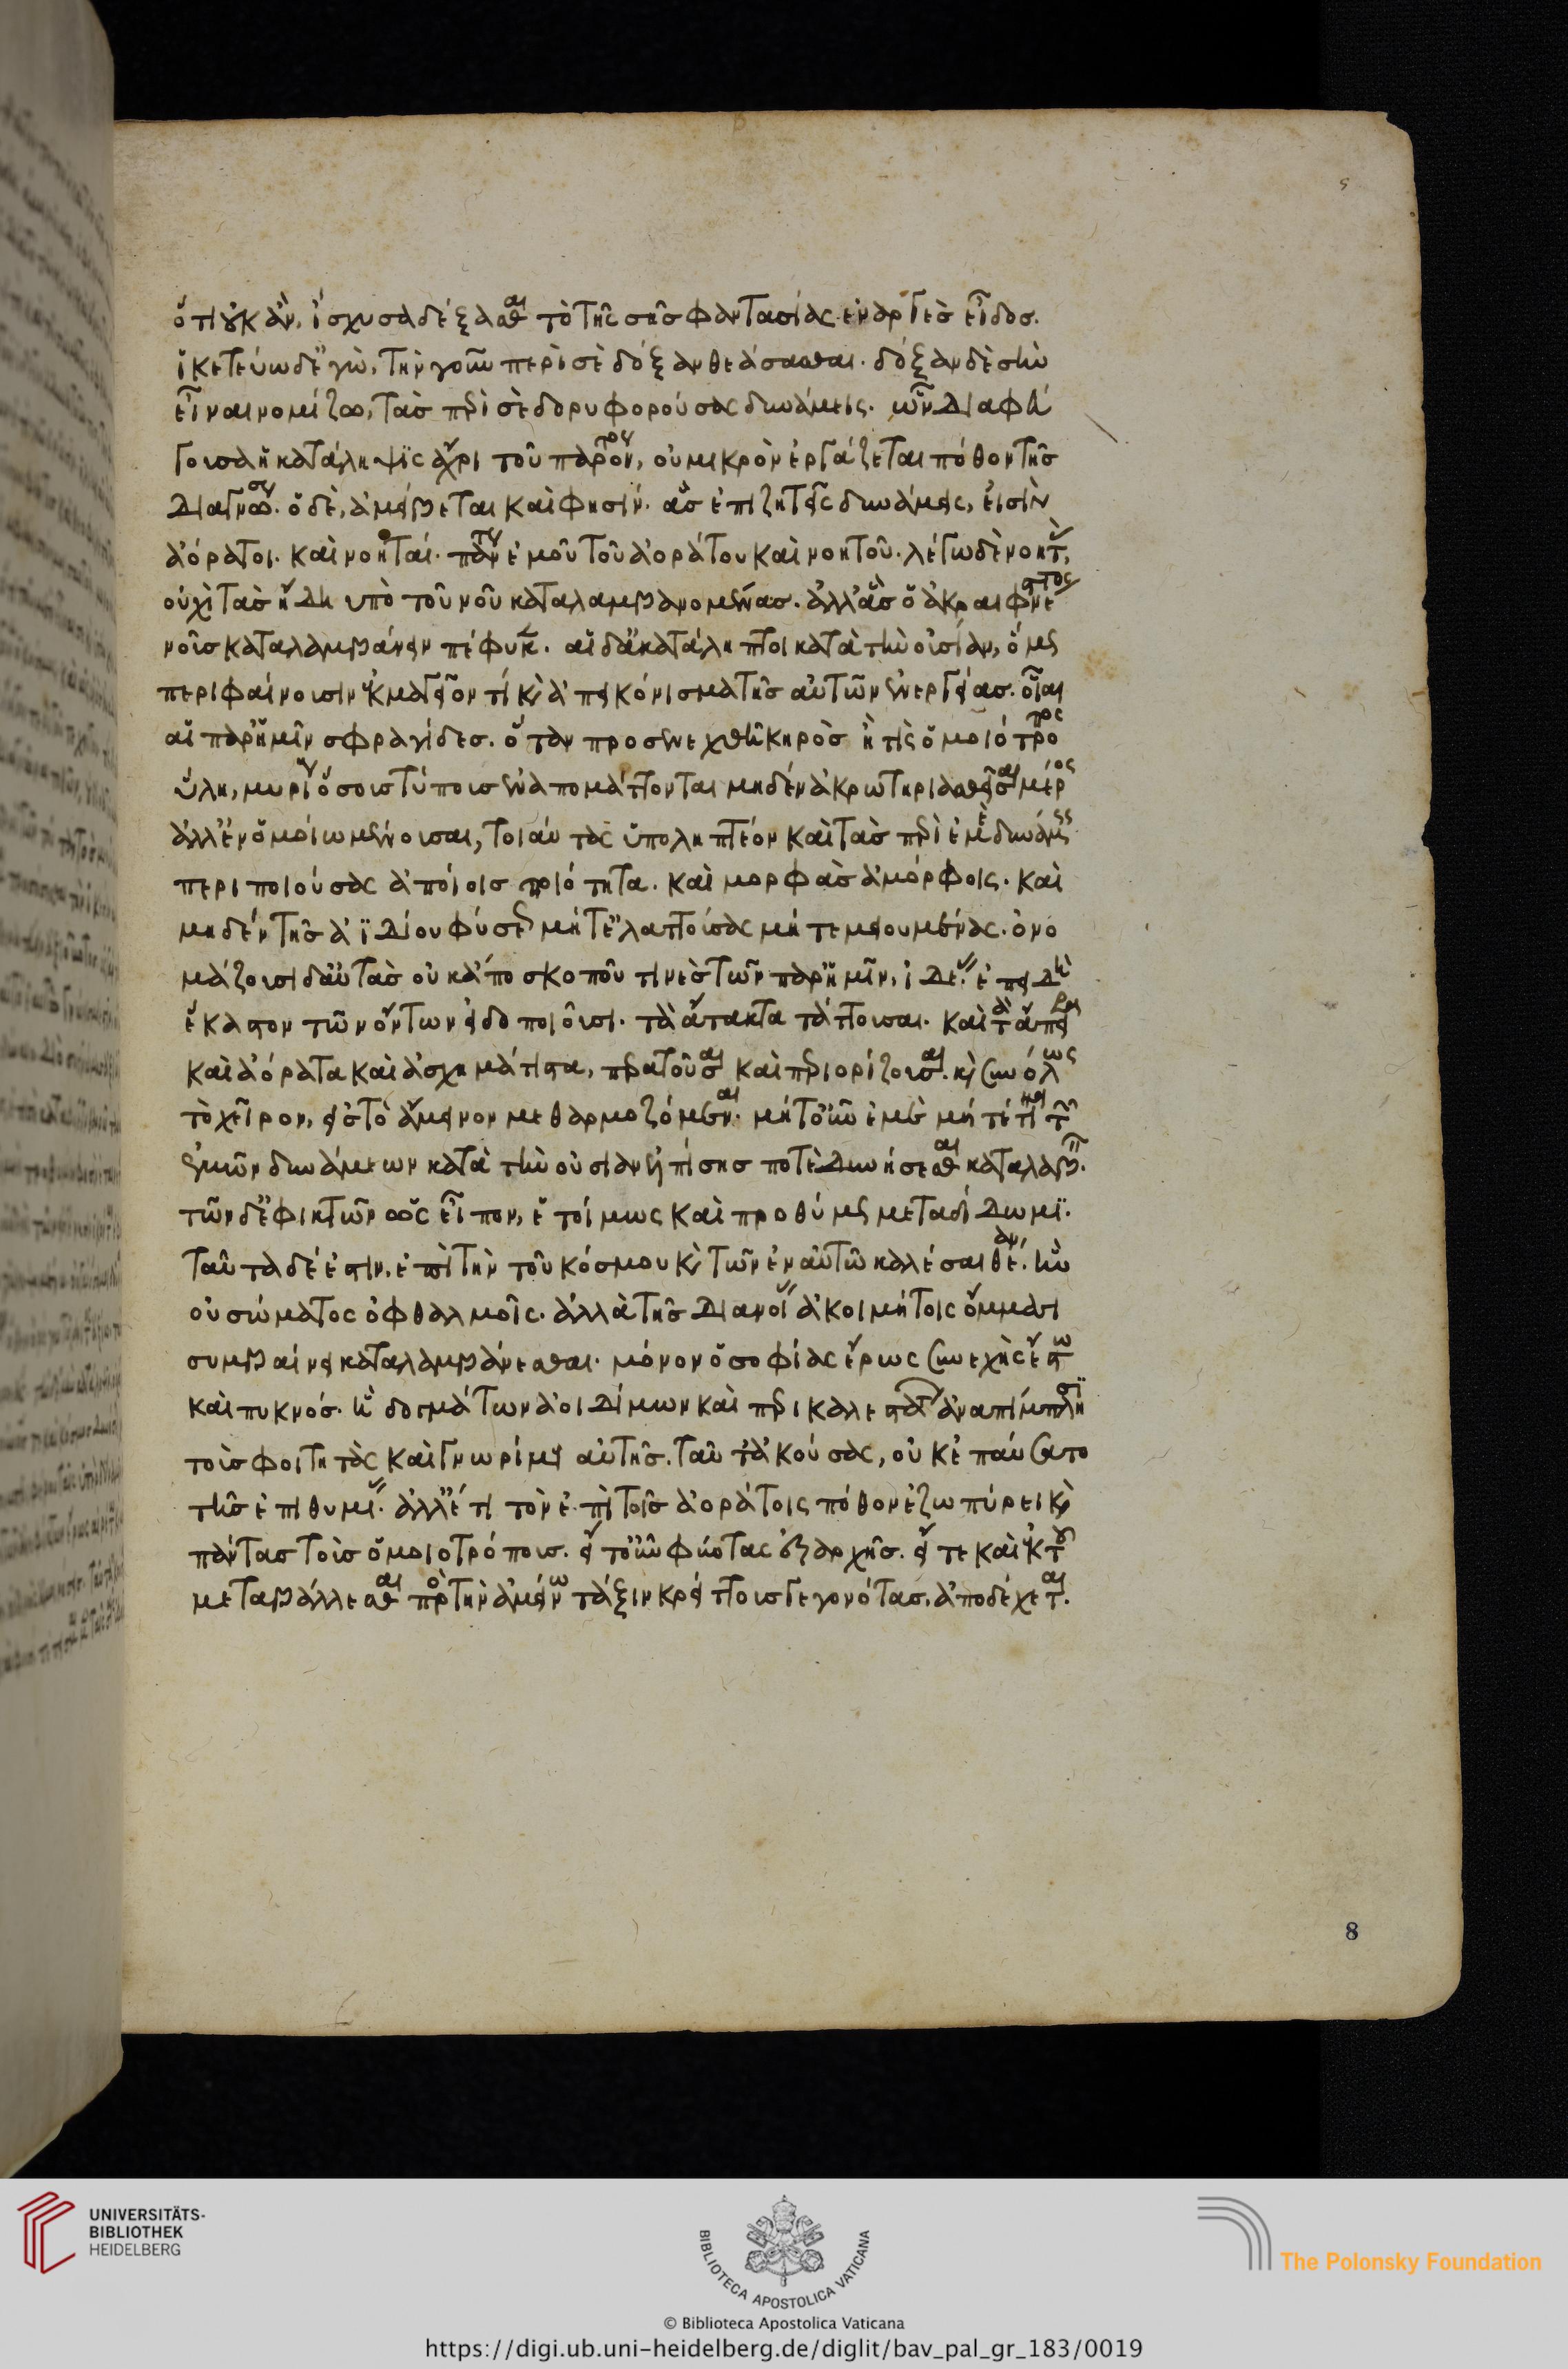 ὅτι οὐκ ἂν, ἴσχυσα δέξασθαι τὸ τῆς σῆς φαντασίας ἐναργὲς εἶδος.
ἱκετεύω δ' ἐγὼ, τὴν γοῦν περὶ σὲ δόξαν θεάσασθαι. δόξαν δὲ σὴν
εἶναι νομίζω, τὰς περὶ σὲ δορυφορούσας δυνάμεις. ὧν διαφεύ
γουσα ἡ κατάληψις ἄχρι τοῦ παρόντος, οὐ μικρὸν ἐργάζεται πόθον τῆς
διαγνώσεως. ὁ δὲ, ἀμείβεται καὶ φησίν. ἃς ἐπιζητεῖς δυνάμεις, εἰσὶν
ἀόρατοι. καὶ νοηταί. πάντως ἐμοῦ τοῦ ἀοράτου καὶ νοητοῦ. λέγω δὲ νοητὰς,
οὐχὶ τὰς ἤδη ὑπὸ τοῦ νοῦ καταλαμβανομένας. ἀλλ' ἃς ὁ ἀκραιφνέστατος
νοῦς καταλαμβάνειν πέφυκε. αἱ δ' ἀκατάληπτοι κατὰ τὴν οὐσίαν, ὅμως
περιφαίνουσιν ἐκμαγεῖόν τι καὶ ἀπεικόνισμα τῆς αὐτῶν ἐνεργείας. οἷαι
αἱ παρ' ἡμῖν σφραγίδες. ὅταν προσενεχθῆ κηρὸς ἤ τις ὁμοιότροπος
ὕλη, μυρίους ὅσους τύπους ἐναπομάττονται μηδὲν ἀκρωτηριασθεῖσαι μέρος
ἀλλ' ἐν ὁμοίω μένουσαι, τοιαύτας ὑποληπτέον καὶ τὰς περὶ ἐμὲ δυνάμεις
περιποιούσας ἀποίοις ποιότητα. καὶ μορφὰς ἀμόρφοις. καὶ
μηδὲν τῆς ἀϊδίου φύσεως μήτ' ἐλαττούσας μήτε μειουμένας. ὀνο
μάζουσι δ' αὐτὰς οὐκ ἀπὸ σκοποῦ τινὲς τῶν παρ' ἡμῖν, ἰδέας. ἐπειδὴ
ἕκαστον τῶν ὄντων εἰδοποιοῦσι. τὰ ἄτακτα τάττουσαι. καὶ τὰ ἄπειρα
καὶ ἀόρατα καὶ ἀσχημάτιστα, περατοῦσαι καὶ περιορίζουσαι. καὶ συνόλως
τὸ χεῖρον, εἰς τὸ ἄμεινον μεθαρμοζόμεναι. μήτ' οὖν ἐμὲ μήτέ τινα τῶν
ἐμῶν δυνάμεων κατὰ τὴν οὐσίαν ἐλπίσης ποτὲ δυνήσεσθαι καταλαβεῖν.
τῶν δ' ἐφικτῶν ὡς εἶπον, ἑτοίμως καὶ προθύμως μεταδίδωμι.
ταῦτα δέ ἐστιν. ἐπὶ τὴν τοῦ κόσμου καὶ τῶν ἐν αὐτῶ καλέσαι θέαν. ἣν
οὐ σώματος ὀφθαλμοῖς. ἀλλὰ τῆς διανοίας ἀκοιμήτοις ὄμμασι
συμβαίνει καταλαμβάνεσθαι. μόνον ὁ σοφίας ἔρως συνεχὴς ἔστω
καὶ πυκνός. ἣ δογμάτων ἀοιδίμων καὶ περικαλεστάτων ἀναπίμπλησι
τοὺς φοιτητὰς καὶ γνωρίμους αὐτῆς. ταῦτ' ἀκούσας, οὐκ ἐπαύσατο
τῆς ἐπιθυμίας. ἀλλ' ἔτι τὸν ἐπὶ τοῖς ἀοράτοις πόθον ἐζωπύρει καὶ
πάντας τοὺς ὁμοιοτρόπους. εἴτ' οὖν φύντας ἐξ ἀρχῆς. εἴτε καὶ ἐκ τοῦ
μεταβάλλεσθαι πρὸς τὴν ἀμείνω τάξιν κρείττους γεγονότας, ἀποδέχεται.
8
UNIVERSITÄTS-
BIBLIOTHEK
HEIDELBERG
BIBLIOTECA APOSTOLICA VATICANA
The Polonsky Foundation
© Biblioteca Apostolica Vaticana
https://digi.ub.uni-heidelberg.de/diglit/bav_pal_gr_183/0019